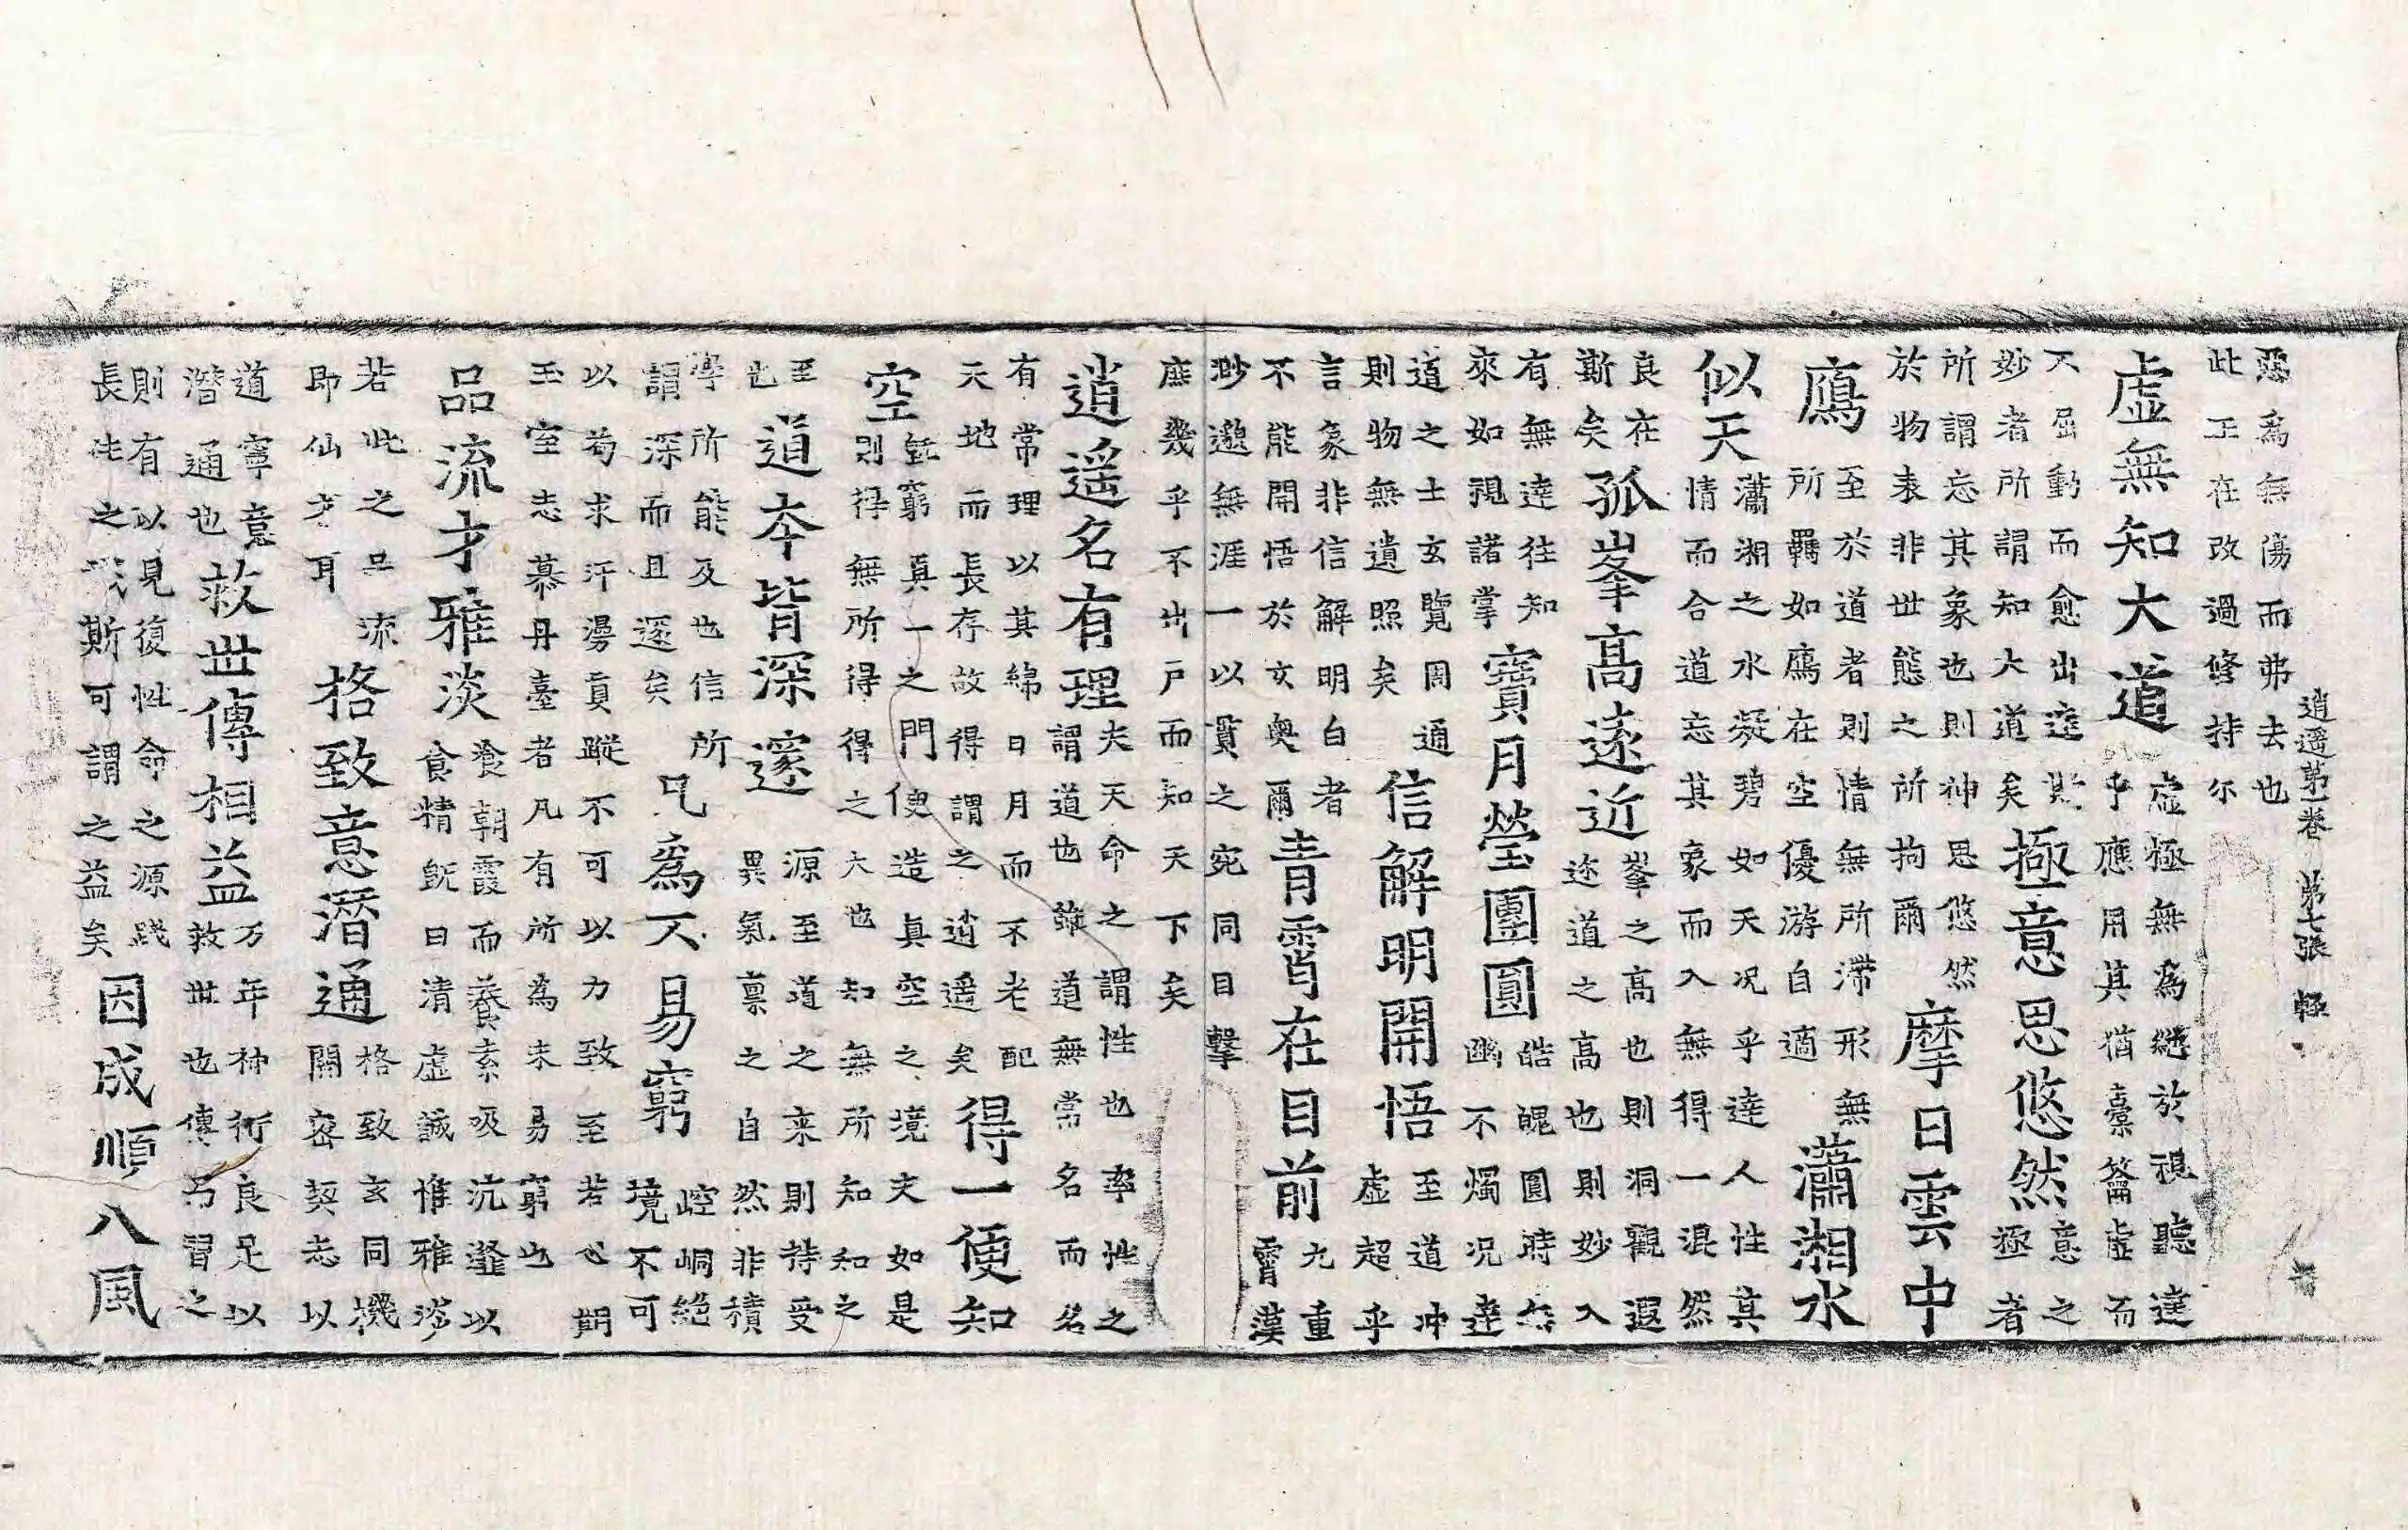 逍遥第一卷 第七張 輕
惡為無傷而弗去也
此正在改過修持尓
虛無知大道
虛極無為絕於視聽達
乎應用其猶橐籥虛而
不屈動而愈出達斯
妙者所謂知大道矣
極意思悠然
意之
極者
所謂忘其象也則神思悠然
於物表非世態之所拘爾
摩日雲中
鴈
至於道者則情無所滯形無
所羈如鴈在空優游自適
瀟湘水
似天
瀟湘之水凝碧如天况乎達人性真
情而合道忘其象而入無得一混然
良在
斯矣
孤峯高遠近
峯之高也則洞觀遐
迩道之高也則妙入
有無達往知
來如視諸掌
寶月瑩團圓
皓魄圓時無
幽不燭况達
道之士玄覽周通
則物無遺照矣
信解明開悟
至道冲
虛超乎
言象非信解明白者
不能開悟於玄奥爾
青霄在目前
九重
霄漢
渺邈無涯一以貫之宛同目擊
庶幾乎不出戶而知天下矣
逍遥名有理
夫天命之謂性也率性之
謂道也雖道無常名而名
有常理以其綿日月而不老配
天地而長存故得謂之逍遥矣
得一便知
空
旣窮真一之門便造真空之境夫如是
則得無所得得之大也知無所知知之
至
也
道本皆深邃
源至道之来則持受
異氣禀之自然非積
學所能及也信所
謂深而且邃矣
凡為不易窮
崆峒絕
境不可
以苟求汗漫貢蹤不可以力致至若心期
玉室志慕丹臺者凡有所為未易窮也
品流才雅淡
飡朝霞而養素吸沆瀣以
食精旣曰清虛誠惟雅淡
若此之品流
即仙才耳
格致意潛通
格致玄同機
關密契志以
道寧意
潛通也
救世傳相益
万年神術良足以
救世也傳習之
則有以見復性命之源踐
長之斯可謂之益矣
因成順八風